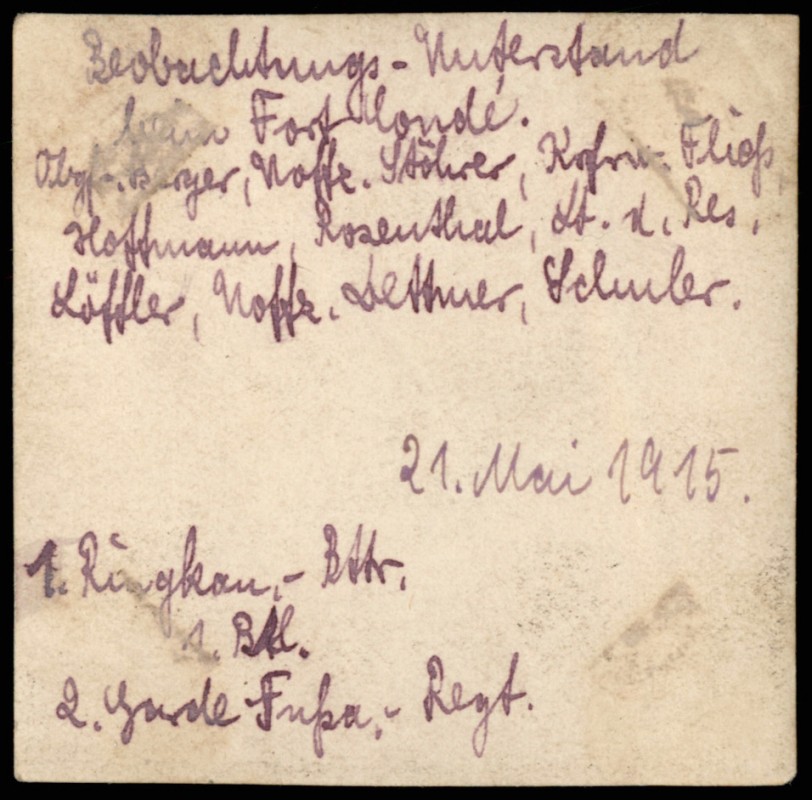 Beobachtungs-Unterstand
beim Fort Condé.
Obgfr. Berger, Uoffz. Stöhrer, Kgfrw. Fließ,
Hoffmann, Rosenthal, Lt. d. Res.
Löffler, Uoffz. Dettmer, Schuler.
21. Mai 1915.
1. Ringkan.- Bttr.
1. Btl.
2. Garde Fußa.- Regt.